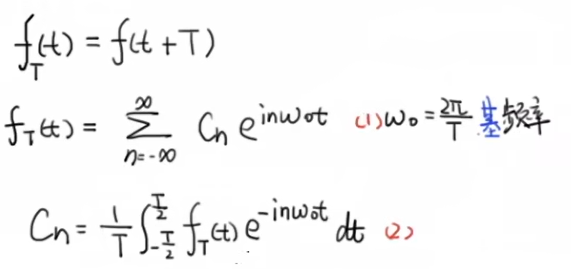 f_T(t) = f(t+T)
f_T(t) = \sum_{n=-\infty}^{\infty} C_n e^{inω_0t} (1) ω_0 = \frac{2π}{T} 基频率
C_n = \frac{1}{T} \int_{-\frac{T}{2}}^{\frac{T}{2}} f_T(t) e^{-inω_0t} dt (2)